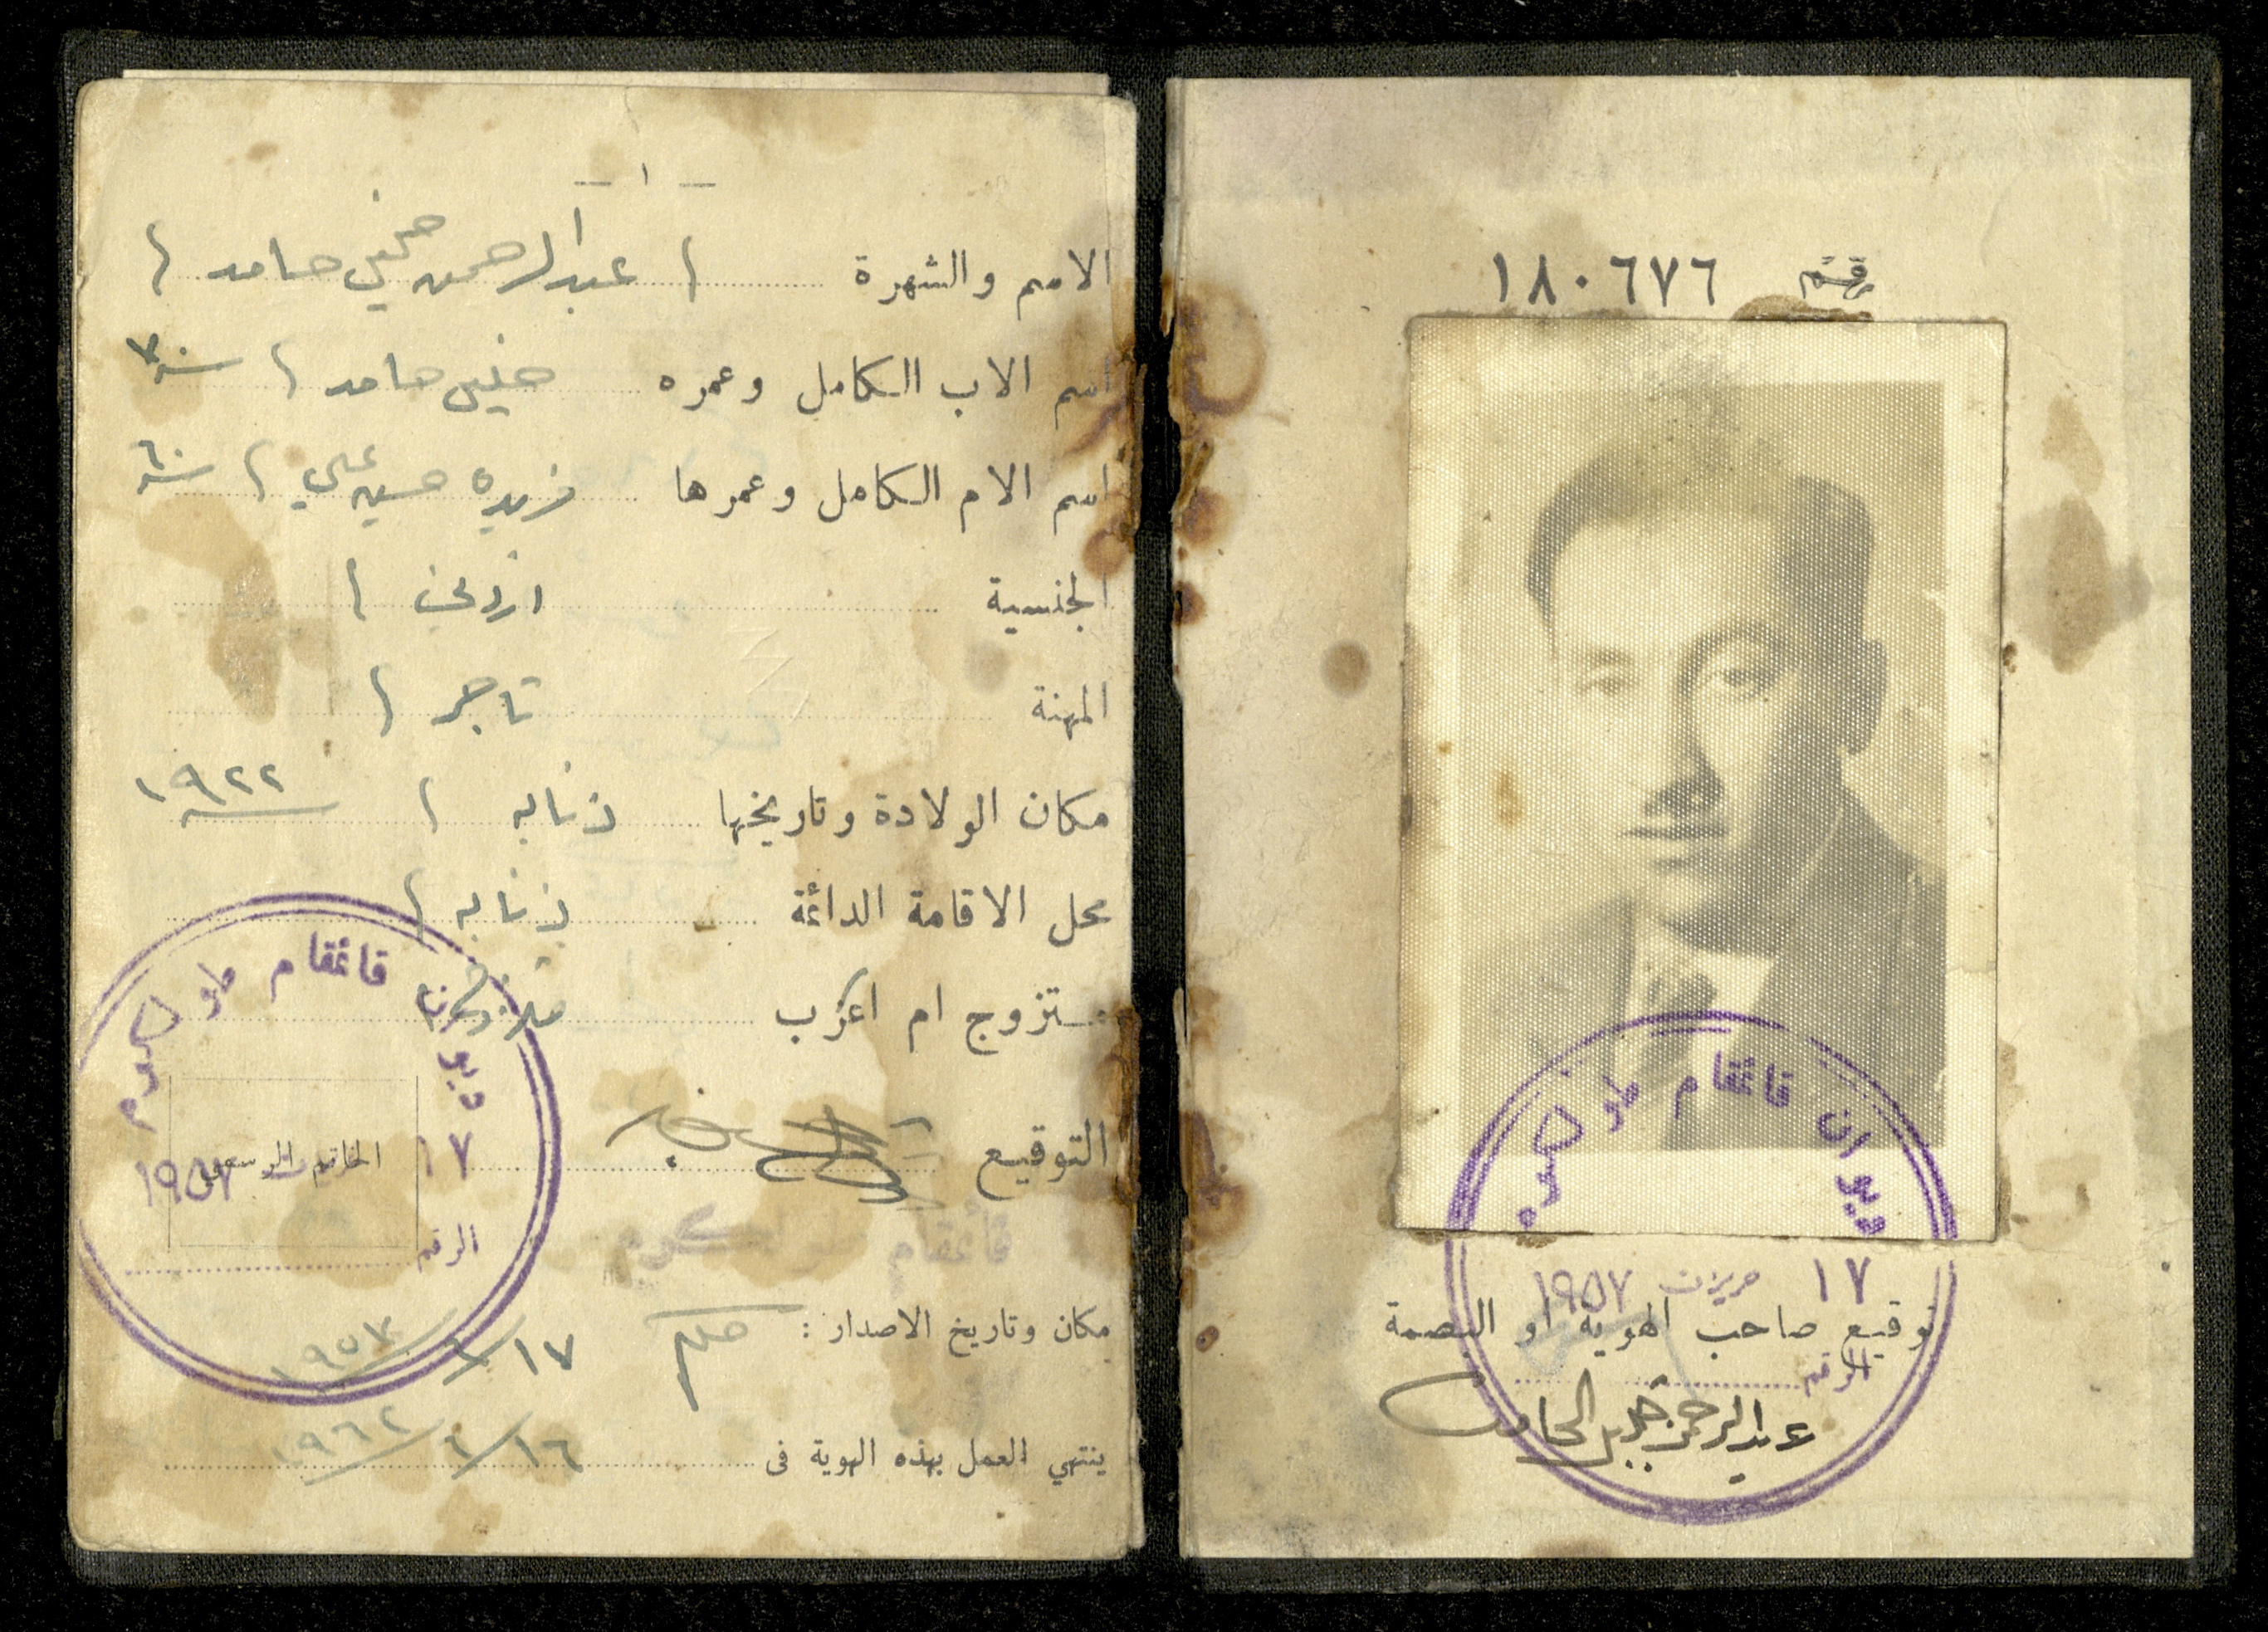 رقم ١٨٠٦٧٦
ديوان قائمقام طولكرم
١٧ حزيران ١٩٥٧
توقيع صاحب الهوية او البصمة
الرقم
عبدالرحمن خليل الحامد
— ١ —
الاسم والشهرة عبدالرحمن خليل حامد
اسم الاب الكامل وعمره خليل حامد ٧٠ سنة
اسم الام الكامل وعمرها فريده حسين علي ٦٠ سنة
الجنسية اردني
المهنة تاجر
مكان الولادة وتاريخها ذنابه ١٩٢٢
محل الاقامة الدائمة ذنابه
متزوج ام اعزب متزوج
ديوان قائمقام طولكرم
التوقيع
١٧ ١٩٥٧
الخاتم الرسمي
الرقم
قائمقام طولكرم
مكان وتاريخ الاصدار : طولكرم ١٧/٦/١٩٥٧
ينتهي العمل بهذه الهوية فى ١٦/٦/١٩٦٢